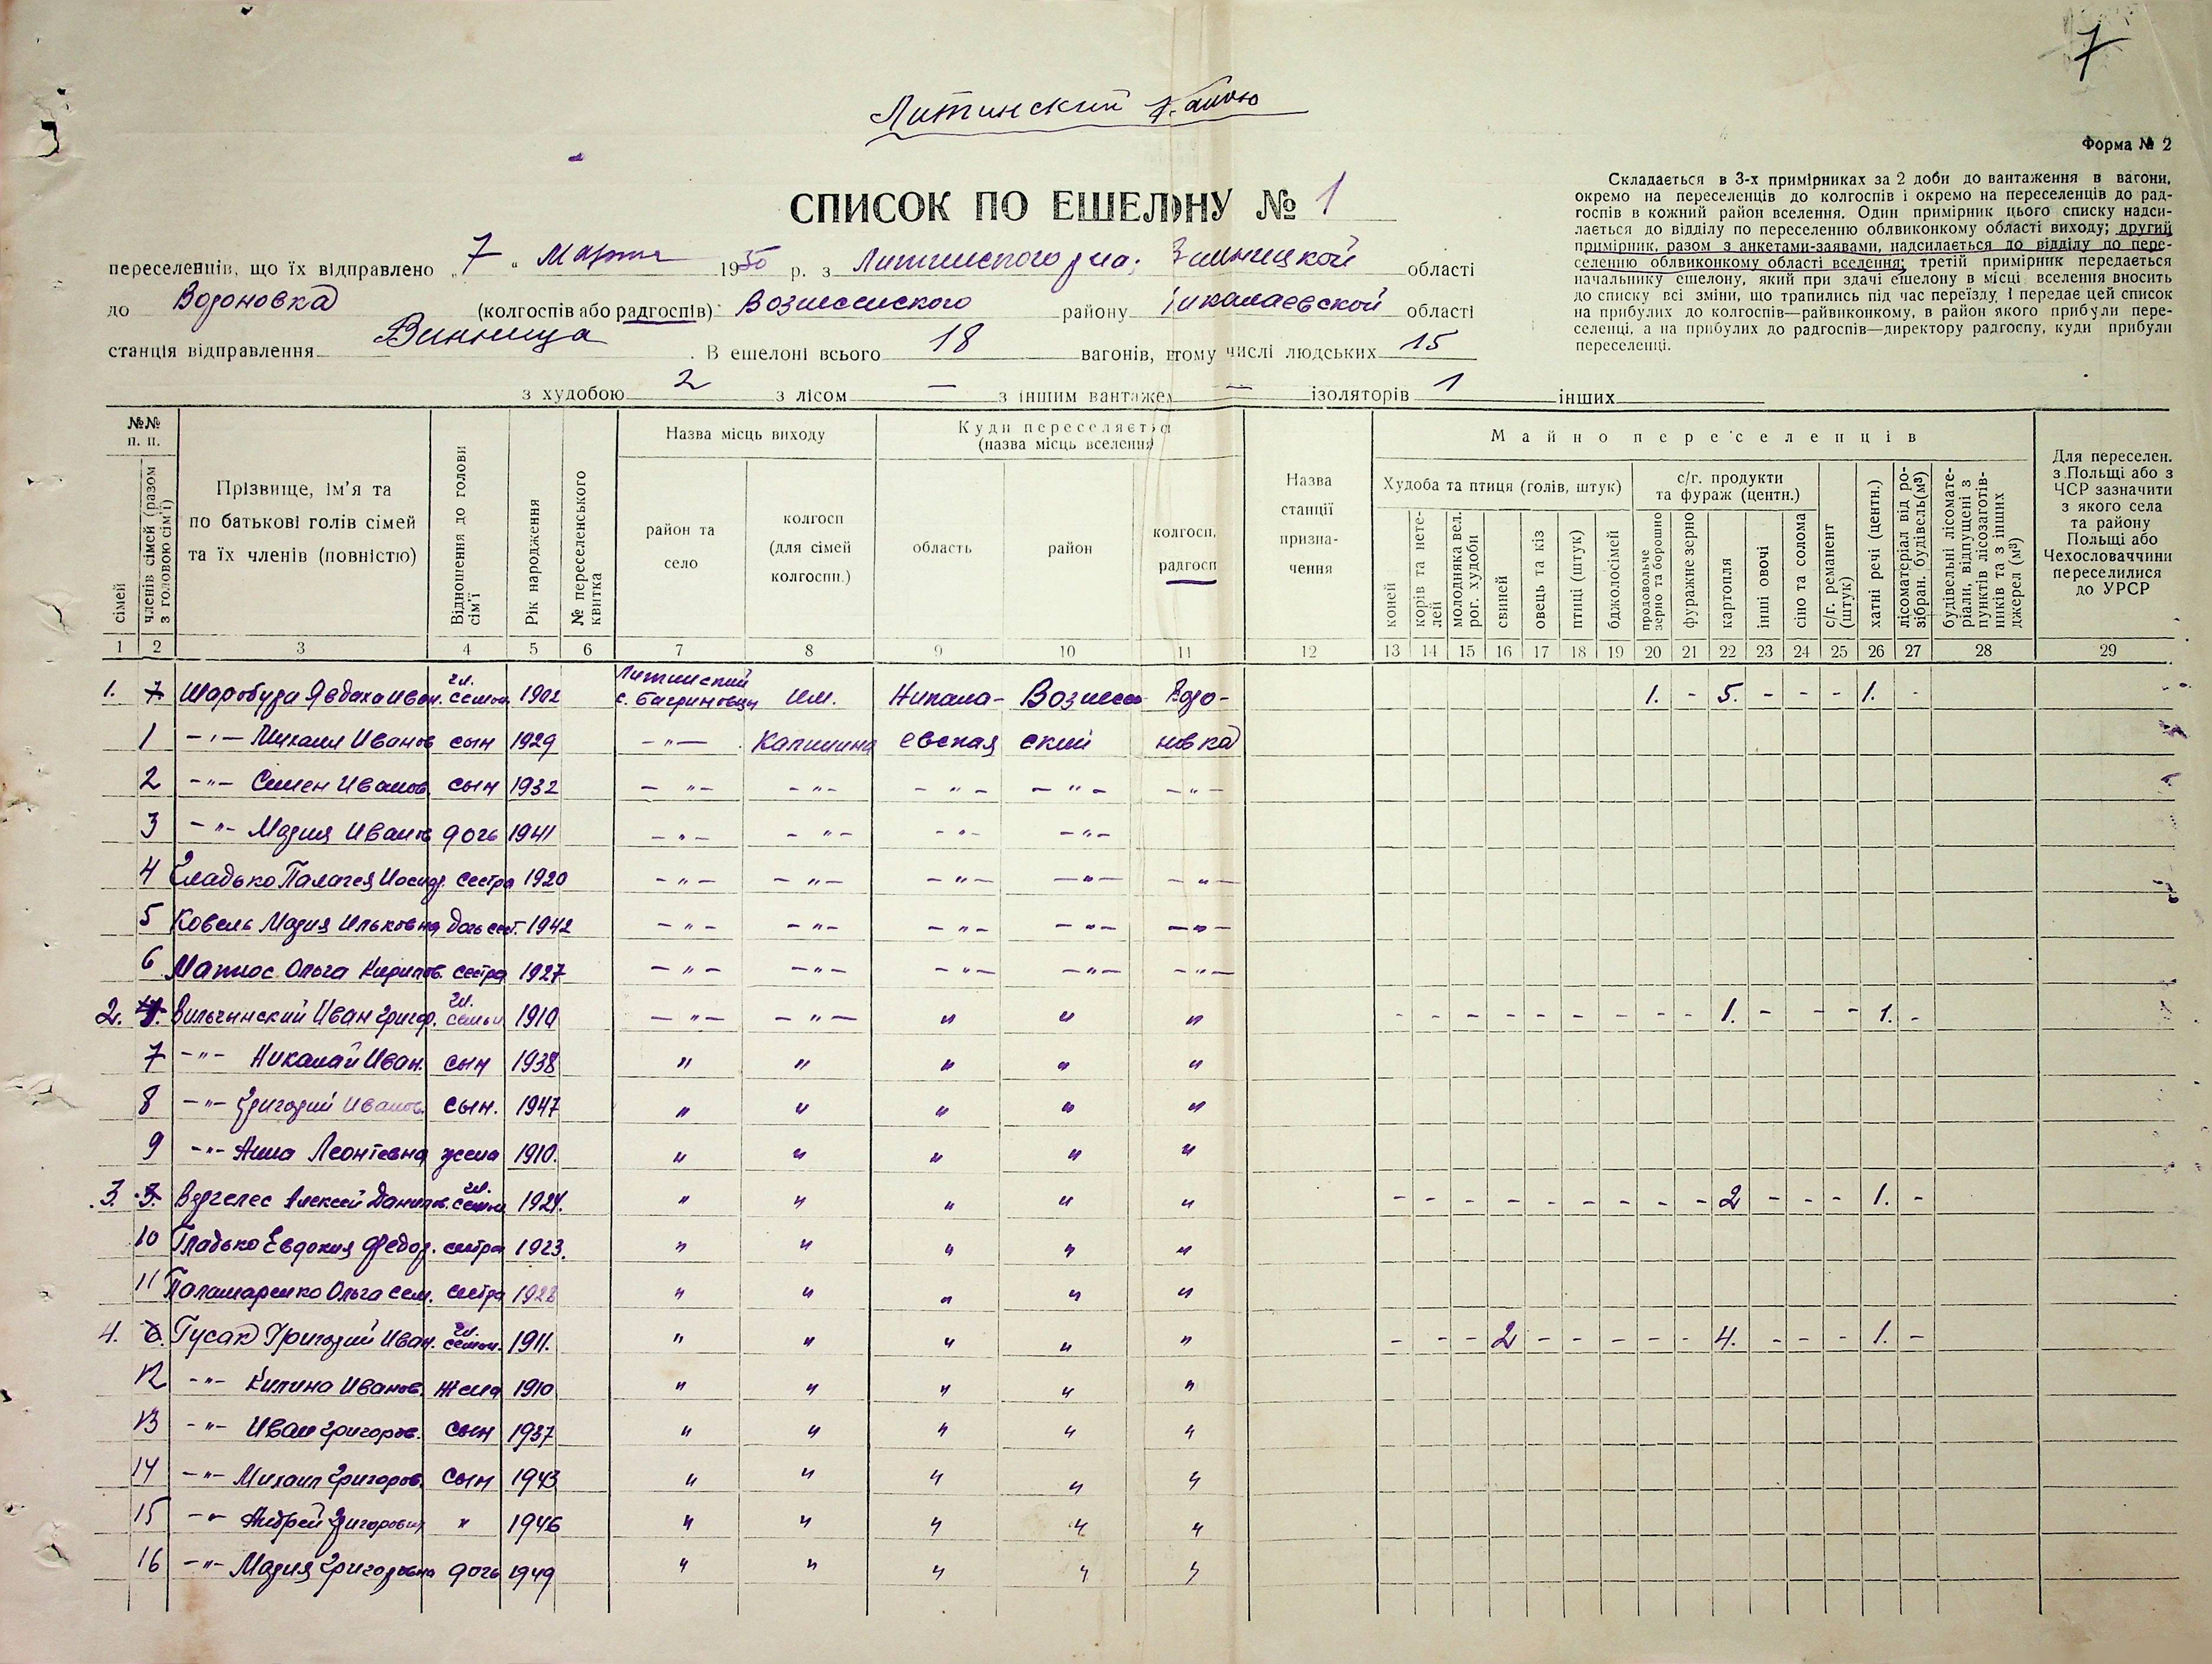 7
Литинский район
Форма № 2
СПИСОК ПО ЕШЕЛОНУ № 1
Складається в 3-х примірниках за 2 доби до вантаження в вагони,
окремо на переселенців до колгоспів і окремо на переселенців до рад-
госпів в кожний район вселення. Один примірник цього списку надси-
лається до відділу по переселенню облвиконкому області виходу; другий
примірник, разом з анкетами-заявами, надсилається до відділу по пере-
селенню облвиконкому області вселення; третій примірник передається
начальнику ешелону, який при здачі ешелону в місці вселення вносить
до списку всі зміни, що трапились під час переїзду, і передає цей список
на прибулих до колгоспів—райвиконкому, в район якого прибули пере-
селенці, а на прибулих до радгоспів—директору радгоспу, куди прибули
переселенці.
переселенців, що їх відправлено „7“ Марта 1950 р. з Литинского р-на; Винницкой області
до Вороновка (колгоспів або радгоспів) Вознесенского району Николаевской області
станція відправлення Винница. В ешелоні всього 18 вагонів, втому числі людських 15
з худобою 2 з лісом — з іншим вантажем — ізоляторів 1 інших
№№ п. п.
сімей
членів сімей (разом з головою сім'ї)
Прізвище, ім'я та
по батькові голів сімей
та їх членів (повністю)
Відношення до голови сім'ї
Рік народження
№ переселенського квитка
Назва місць виходу
район та село
колгосп (для сімей колгоспн.)
Куди переселяється
(назва місць вселення)
область
район
колгосп, радгосп
Назва станції призна-чення
Майно переселенців
Худоба та птиця (голів, штук)
коней
корів та нете-лей
молодняка вел. рог. худоби
свиней
овець та кіз
птиці (штук)
бджолосімей
с/г. продукти та фураж (центн.)
продовольче зерно та борошно
фуражне зерно
картопля
інші овочі
сіно та солома
с/г. реманент (штук)
хатні речі (центн.)
лісоматеріал від ро-зібран. будівель(м³)
будівельні лісомате-ріали, відпущені з пунктів лісозаготів-ників та з інших джерел (м³)
Для переселен.
з Польщі або з
ЧСР зазначити
з якого села
та району
Польщі або
Чехословаччини
переселилися
до УРСР
1 2 3 4 5 6 7 8 9 10 11 12 13 14 15 16 17 18 19 20 21 22 23 24 25 26 27 28 29
1. 7 Шаробура Явдоха Иван. гл. семьи 1902 Литинский с. Багриновцы им. Никола- Вознесен- Воро- 1. - 5. - - - 1. -
1 -"- Михаил Иванов сын 1929 -"- Калинина евская ский новка
2 -"- Семен Иванов. сын 1932 -"- -"- -"- -"- -"-
3 -"- Мария Иванов дочь 1941 -"- -"- -"- -"-
4 Гладько Палагея Иосиф. сестра 1920 -"- -"- -"- -"- -"-
5 Ковель Мария Ильковна дочь сест. 1942 -"- -"- -"- -"- -"-
6 Ольга Кирилов. сестра 1927 -"- -"- -"- -"- -"-
2. Вильчынский Иван Григор. гл. семьи 1910 -"- -"- " " " - - - - - - - - - 1. - - - 1. -
7 -"- Николай Иван. сын 1938 " " " " "
8 -"- Григорий Иванов. сын. 1947 " " " " "
9 -"- Анна Леонтевна жена 1910. " " " " "
3. 3. Вергелес Алексей Данилов. гл. семьи 1924. " " " " " - - - - - - - - - 2 - - - 1. -
10 Гладько Евдокия Федор. сестра 1923. " " " " "
11 Паламаренко Ольга Сем. сестра 1928 " " " " "
4. 6. Гусак Григорий Иван. гл. семьи. 1911. " " " " " - - - 2 - - - - - 4. - - - 1. -
12 -"- Килина Иванов. жена 1910 " " " " "
13 -"- Иван Григоров. сын 1937 " " " " "
14 -"- Михаил Григоров. сын 1943 " " " " "
15 -"- Андрей Григорович " 1946 " " " " "
16 -"- Мария Григоровна дочь 1949 " " " " "